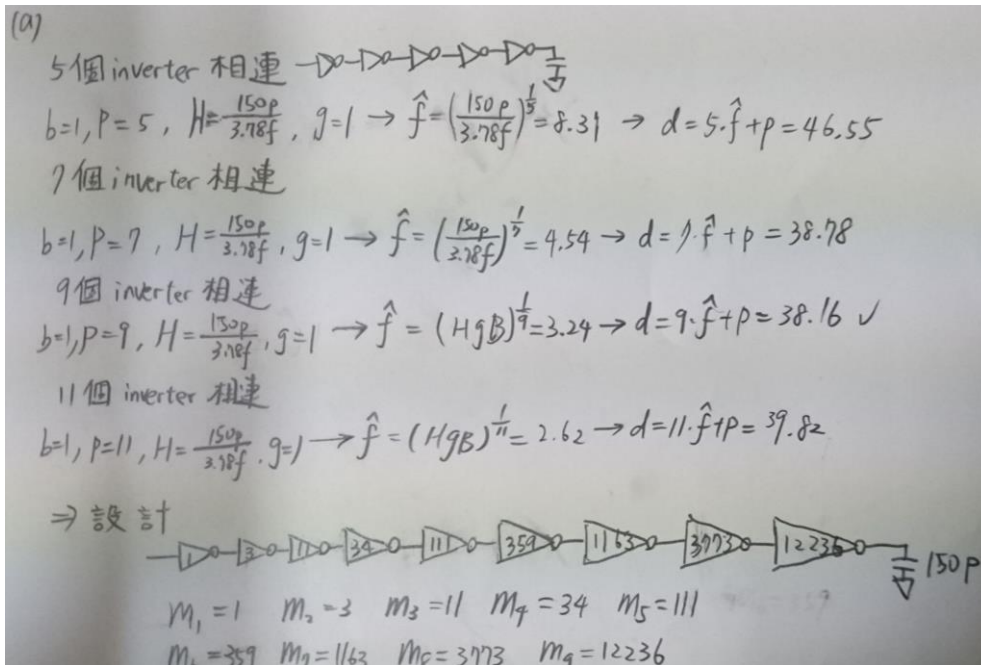 (a)
5個inverter相連
b=1, P=5, H=150p/3.78f, g=1 → f̂=(150p/3.78f)^(1/5)=8.31 → d=5·f̂+p=46.55
7個inverter相連
b=1, P=7, H=150p/3.78f, g=1 → f̂=(150p/3.78f)^(1/7)=4.54 → d=7·f̂+p=38.78
9個 inverter 相連
b=1, P=9, H=150p/3.78f, g=1 → f̂=(HgB)^(1/9)=3.24 → d=9·f̂+p=38.16 ✓
11個 inverter 相連
b=1, P=11, H=150p/3.78f, g=1 → f̂=(HgB)^(1/11)=2.62 → d=11·f̂+p=39.82
⇒ 設計
1 3 11 34 111 359 1163 3773 12236 150p
m₁=1 m₂=3 m₃=11 m₄=34 m₅=111
m₆=359 m₇=1163 m₈=3773 m₉=12236